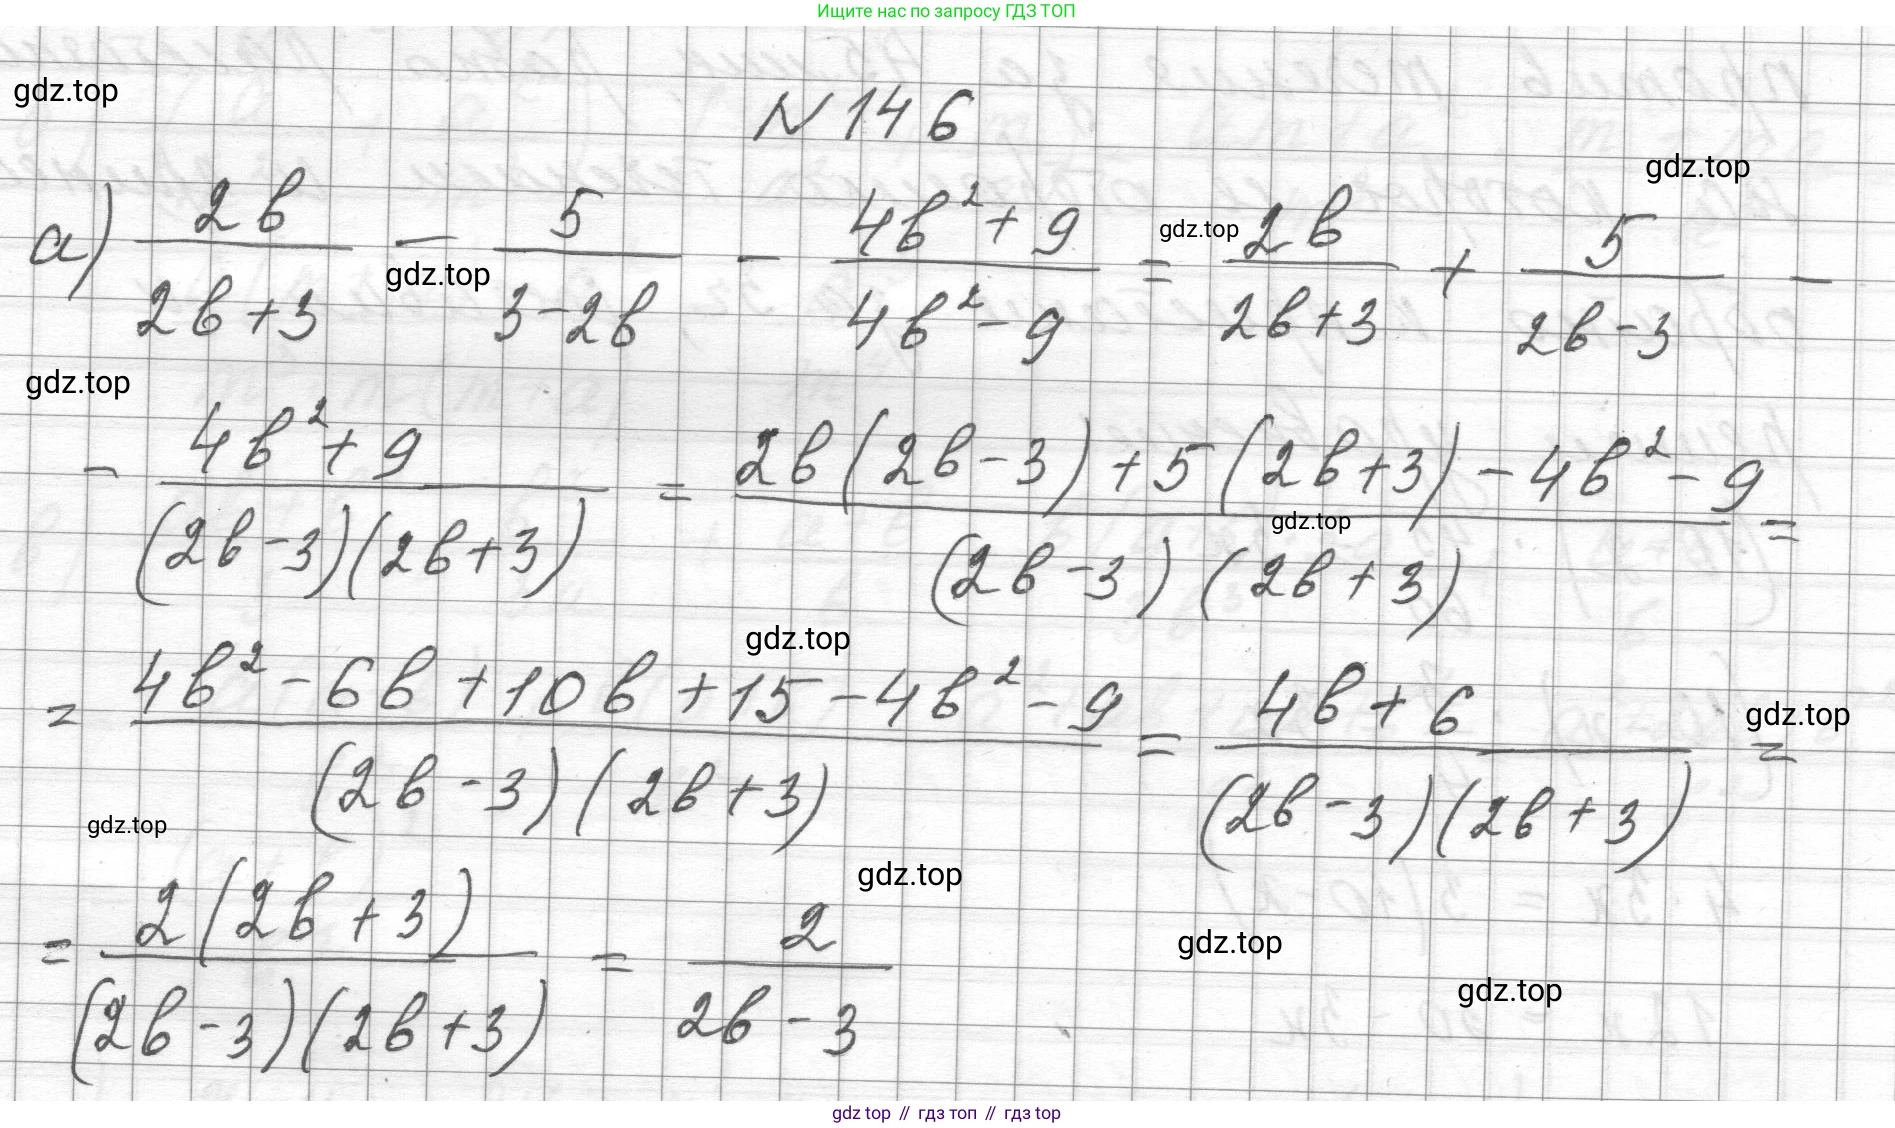 Ищите нас по запросу ГДЗ ТОП
gdz.top
N 146
gdz.top
а) 2b/(2b+3) - 5/(3-2b) - (4b²+9)/(4b²-9) = 2b/(2b+3) + 5/(2b-3) -
gdz.top
gdz.top
gdz.top
- (4b²+9)/((2b-3)(2b+3)) = (2b(2b-3)+5(2b+3)-4b²-9)/((2b-3)(2b+3)) =
gdz.top
gdz.top
= (4b²-6b+10b+15-4b²-9)/((2b-3)(2b+3)) = (4b+6)/((2b-3)(2b+3)) =
gdz.top
gdz.top
gdz.top
= 2(2b+3)/((2b-3)(2b+3)) = 2/(2b-3)
gdz.top
gdz.top
gdz top // гдз топ // гдз top